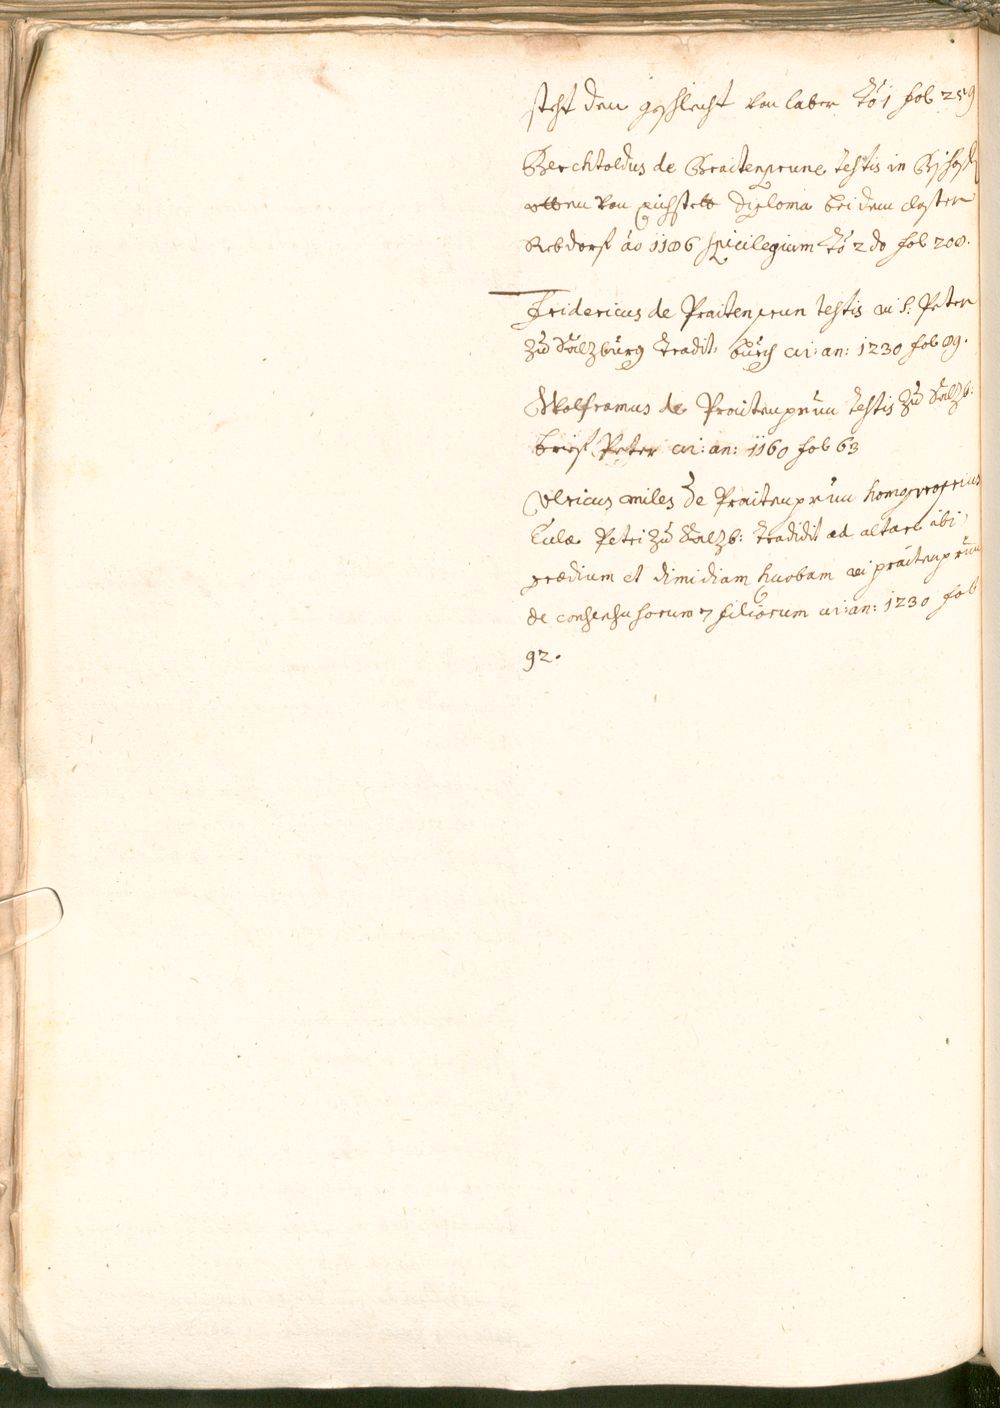 steht den geschlecht von laber To 1 fol 259
Berchtoldus de Braitenprune testis in Bischof
otten von Eichstett diploma bei dem closter
Rebdorf ao 1186 spicilegium To 2 do fol 208.
Fridericus de Praitenprun testis in S: Peter
zu Salzburg tradit: buech ci: an: 1230 fol 89.
Wolframus de Praitenprun testis zu Salzb:
brief Peter ci: an: 1160 fol 63
Ulricus miles de Praitenprun homo proprius
Petri zu Salzb: tradidit ad altare ibi
prædium et dimidiam huobam in praitenprun
de consensu sorum 7 filiorum ci: an: 1230 fol
92.